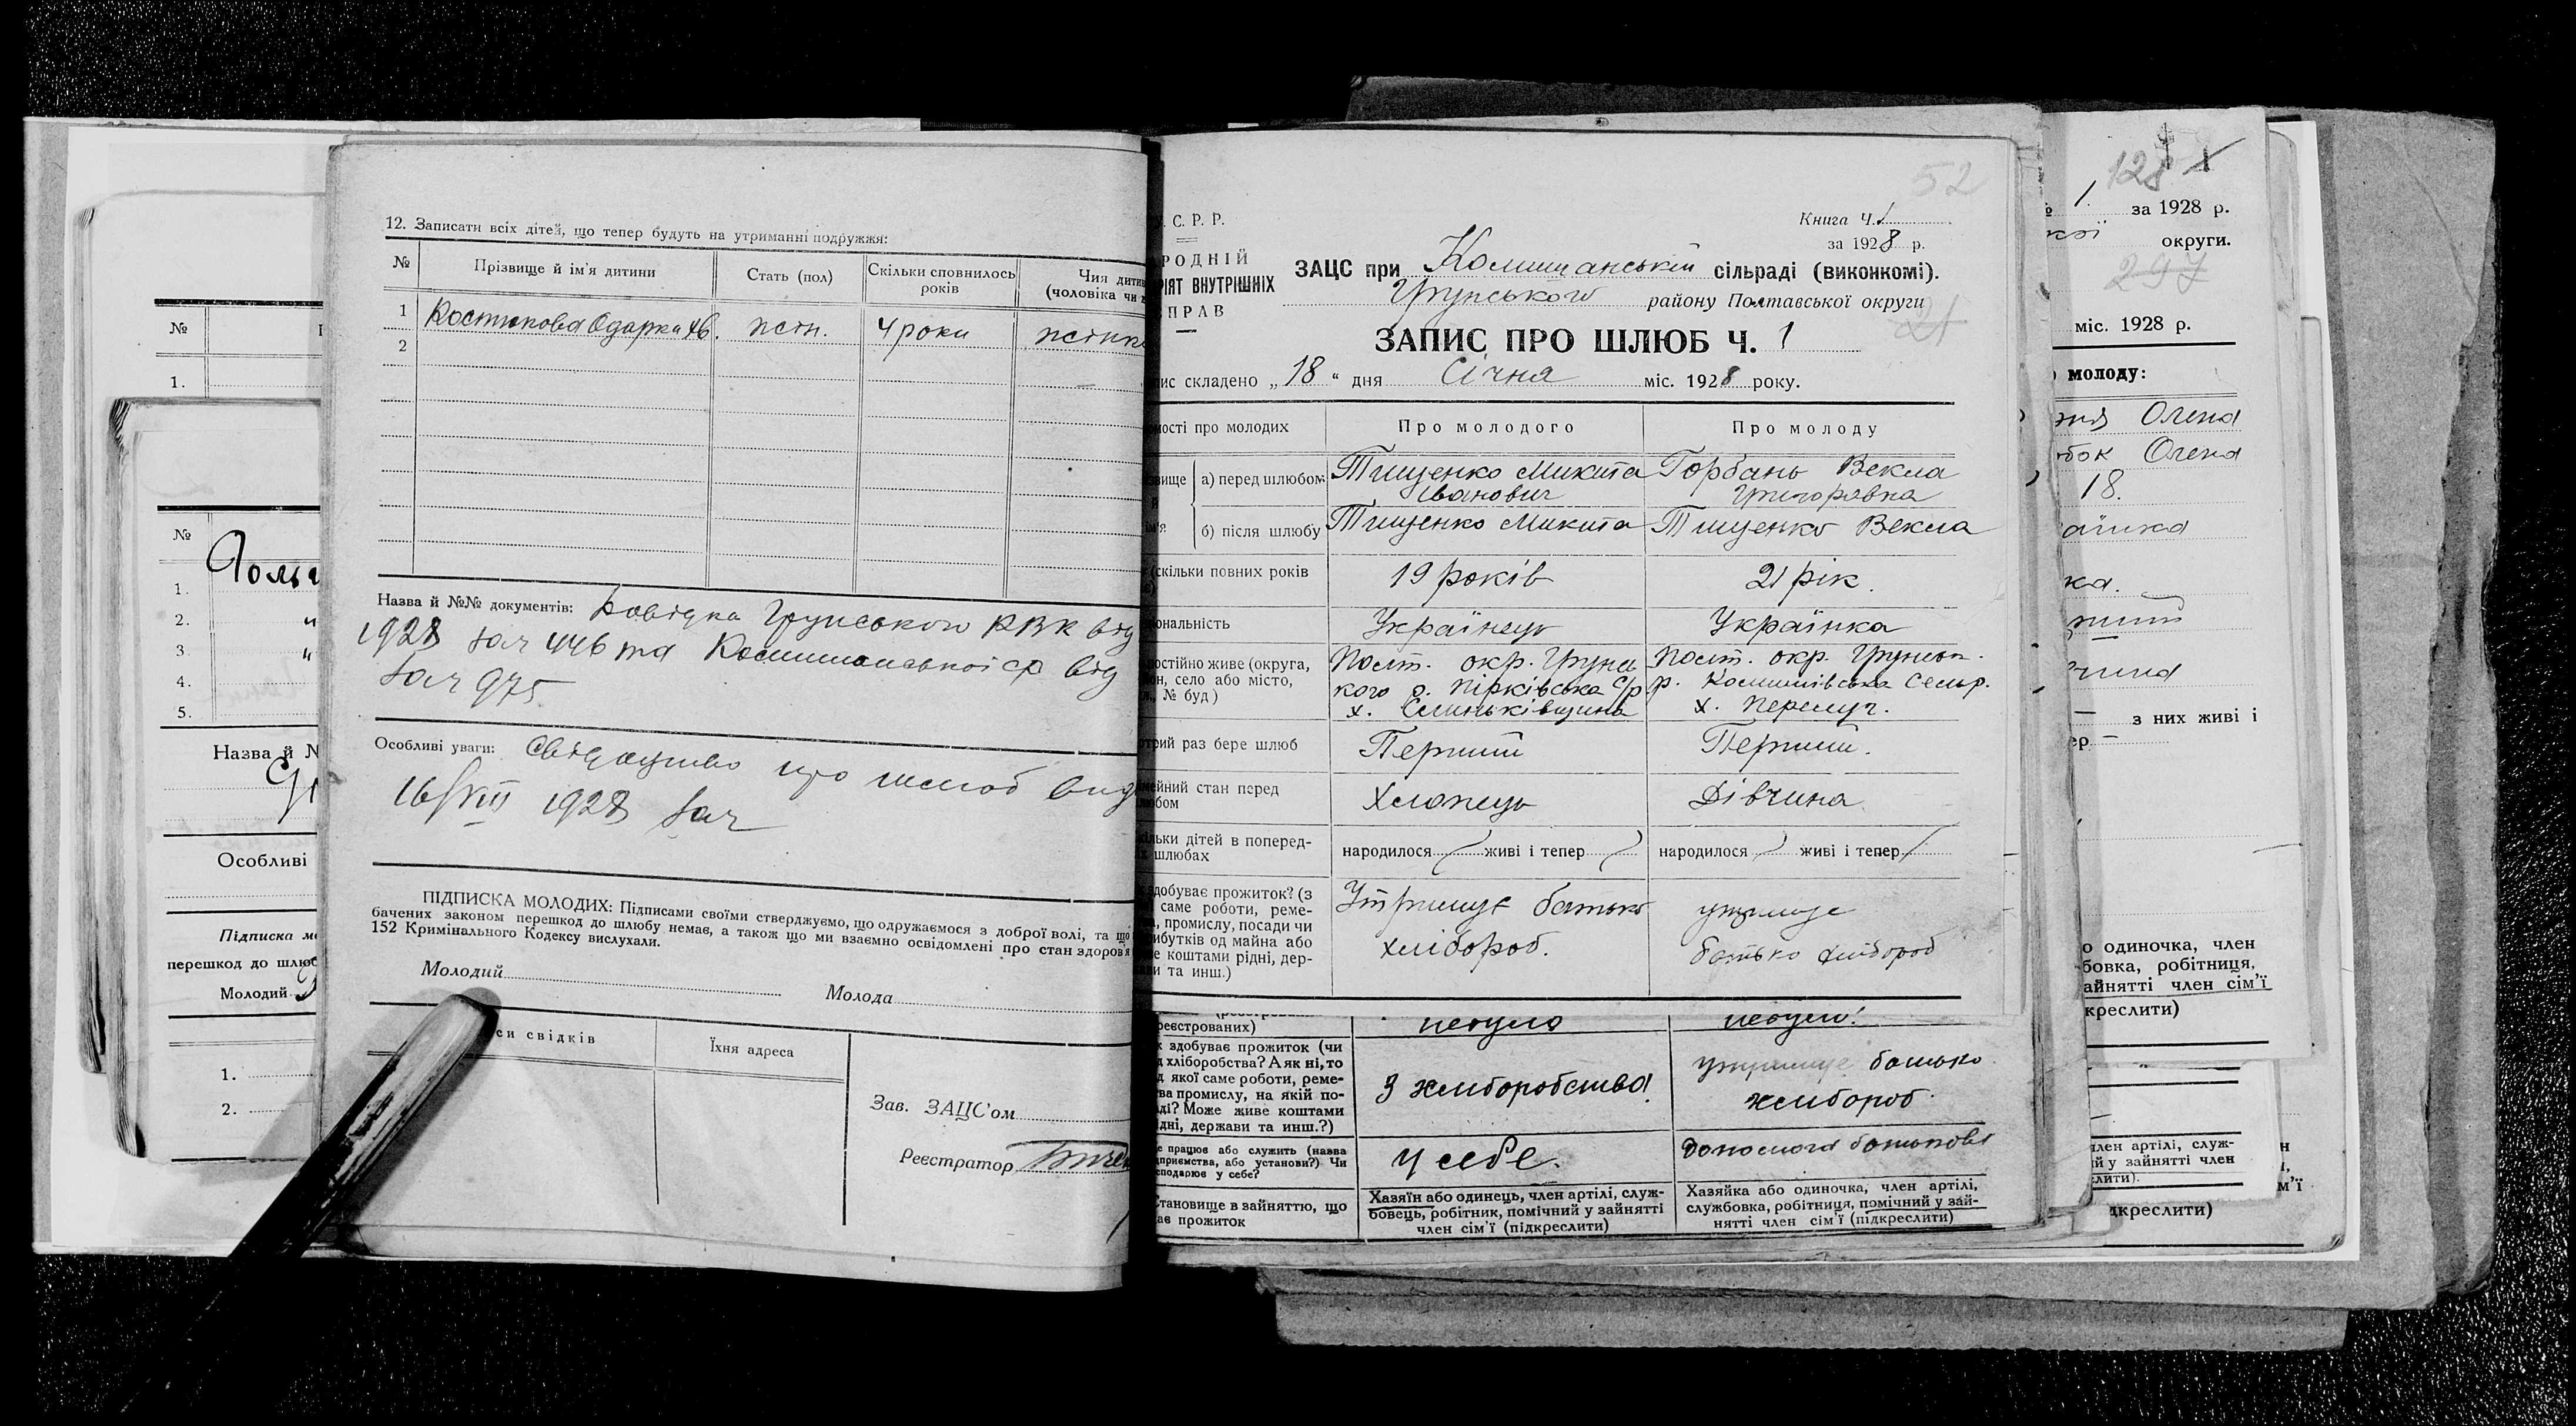 12. Записати всіх дітей, що тепер будуть на утриманні подружжя:
№ Прізвище й ім'я дитини Стать (пол) Скільки сповнилось років Чия дитин (чоловіка чи
1 Костюкова Одарка 4 роки
2
Назва й №№ документів: Довідка Грунського РВК від
1928 за ч 446 та Комишанської с/р від
за ч 975
Особливі уваги: Свідоцтво про шлюб вид
16/VIII 1928 за ч
ПІДПИСКА МОЛОДИХ: Підписами своїми стверджуємо, що одружаємося з доброї волі, та що
бачених законом перешкод до шлюбу немає, а також що ми взаємно освідомлені про стан здоров'я
152 Кримінального Кодексу вислухали.
Молодий Молода
си свідків Їхня адреса
Зав. ЗАЦС'ом
Реєстратор
№
1.
№
1.
2. "
3 "
4.
5.
Назва й №
Особливі
Підписка м
перешкод до шлюб
Молодий
1.
2.
52
С. Р. Р.
Книга Ч. 1
за 1928 р.
РОДНІЙ
РІЯТ ВНУТРІШНІХ
ПРАВ
ЗАЦС при Комишанській сільраді (виконкомі).
Грунського району Полтавської округи
21
ЗАПИС ПРО ШЛЮБ Ч. 1
ис складено „18“ дня Січня міс. 1928 року.
мості про молодих Про молодого Про молоду
звище й ім'я а) перед шлюбом Тищенко Микита Іванович Горбань Векла Григорівна
б) після шлюбу Тищенко Микита Тищенко Векла
(скільки повних років 19 років 21 рік.
ональність Українець Українка
постійно живе (округа, Полт. окр. Грунсь Полт. окр. Грунськ.
он, село або місто, кого р. Пірківська с/р р. Комишівська Сельр.
№ буд) х. х. Перелуг.
трий раз бере шлюб Перший Перший.
мейний стан перед
любом Хлопець Дівчина
кільки дітей в поперед-
шлюбах народилося живі і тепер народилося живі і тепер
здобуває прожиток? (з
саме роботи, реме-
, промислу, посади чи
ибутків од майна або
е коштами рідні, дер-
ви та инш.)
Утримує батько хлібороб.
утримує батько хлібороб
реєстрованих) небуло небуло!
к здобуває прожиток (чи
д хліборобства? А як ні, то
д якої саме роботи, реме-
ва промислу, на якій по-
ді? Може живе коштами
ідні, держави та инш.?)
З хліборобства!
утримує батько хлібороб.
е працює або служить (назва
дприємства, або установи?) Чи
сподарює у себе?
У себе.
допомога батькові
Становище в зайняттю, що
ає прожиток
Хазяїн або одинець, член артілі, служ-
бовець, робітник, помічний у зайнятті
член сім'ї (підкреслити)
Хазяйка або одиночка, член артілі,
службовка, робітниця, помічний у зай-
нятті член сім'ї (підкреслити)
128
1. за 1928 р.
кої округи.
297
міс. 1928 р.
молоду:
Олена
Олена
18.
з них живі і
ер
о одиночка, член
бовка, робітниця,
айнятті член сім'ї
креслити)
член артілі, служ-
ий у зайнятті член
слити).
м'ї
дкреслити)